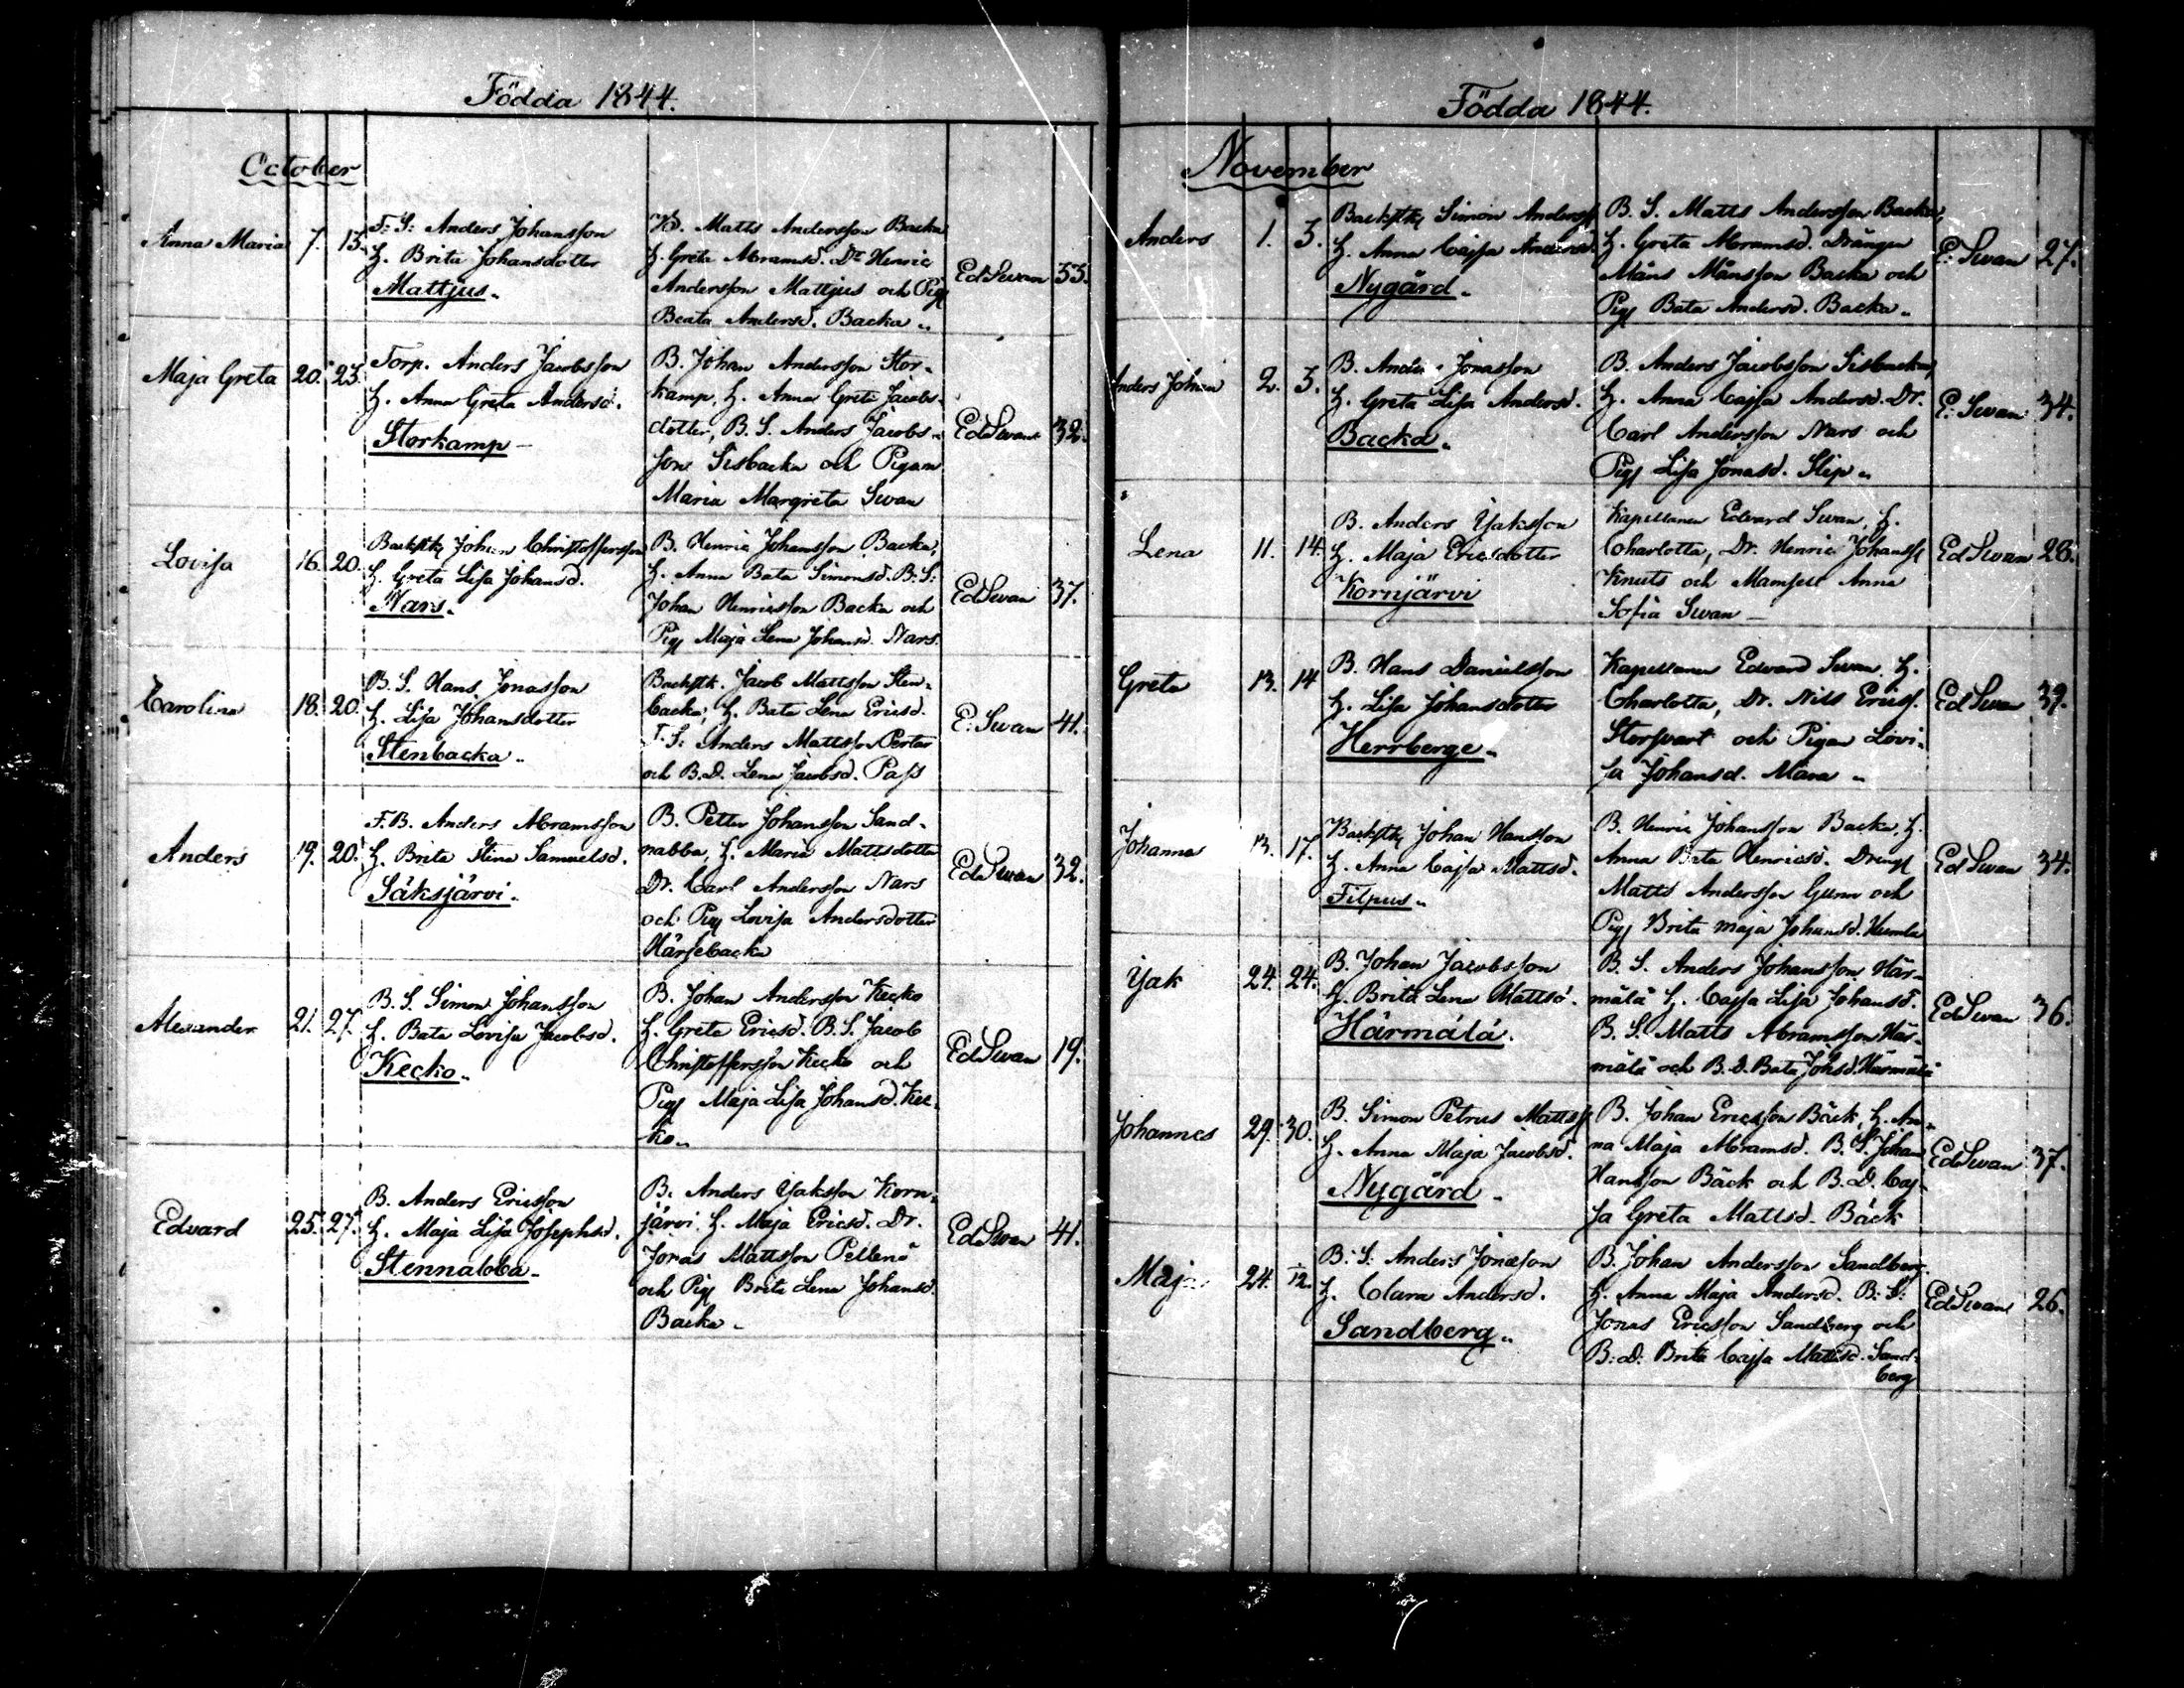 Födda 1844.
October
Anna Maria 7. 13. T: S: Anders Johansson
H. Brita Johansdotter
Mattjus.
B. Matts Andersson Backa
H. Greta Abramsd. Dr Henric
Andersson Mattjus och Pig
Beata Andersd. Backa
Ed Swan 33.
Maja Greta 20. 23. Torp. Anders Jacobsson
H. Anna Greta Andersd.
Storkamp
B. Johan Andersson Stor-
kamp, H. Anna Greta Jacobs-
dotter, B. S. Anders Jacobs-
son Sisbacka och Pigan
Maria Margreta Swan
Ed Swan 32.
Lovisa 16. 20. Backstk Johan Christoffersson
H. Greta Lisa Johansd.
Nars.
B. Henric Johansson Backa,
H. Anna Bata Simonsd. B. S:
Johan Henricsson Backa och
Pig Maja Lena Johansd. Nars.
Ed Swan 37.
Carolina 18. 20. B. S. Hans Jonasson
H. Lisa Johansdotter
Stenbacka
Backstk. Jacob Mattsson Sten-
backa, H. Bata Lena Ericsd.
T. S: Anders Mattsson Pertar
och B. D. Lena Jacobsd. Pass
E. Swan 41.
Anders 19. 20. F. B. Anders Abramsson
H. Brita Stina Samuelsd.
Säksjärvi.
B. Petter Johansson Sand-
nabba, H. Maria Mattsdotter
Dr. Carl Andersson Nars
och Pig Lovisa Andersdotter
Härsebacka
Ed Swan 32.
Alexander 21. 27. B. S. Simon Johansson
H. Bata Lovisa Jacobsd.
Kecko.
B. Johan Andersson Kecko
H. Greta Ericsd. B. S. Jacob
Christoffersson Kecko och
Pig Maja Lisa Johansd. Kec-
ko.
Ed Swan 19.
Edvard 25. 27. B. Anders Ericsson
H. Maja Lisa Josephsd.
Stennabba
B. Anders Yaksson Korn-
järvi, H. Maja Ericsd. Dr.
Jonas Mattsson Pellenö
och Pig Brita Lena Johansd.
Backa
Ed Swan 41.
Födda 1844.
November
Anders 1. 3. Backstk Simon Anderss
H. Anna Cajsa Andersd.
Nygård
B. S. Matts Andersson Backa,
H. Greta Abramsd. Drängen
Måns Månsson Backa och
Pig Bata Andersd. Backa
E: Swan 27.
Anders Johan 2. 3. B. Anders Jonasson
H. Greta Lisa Andersd.
Backa
B. Anders Jacobsson Sisbacka,
H. Anna Cajsa Andersd. Dr.
Carl Andersson Nars och
Pig Lisa Jonasd. Slip
E: Swan 34.
Lena 11. 14. B. Anders Yaksson
H. Maja Ericsdotter
Kornjärvi
Kapellanen Edvard Swan, H.
Charlotta, Dr. Henric Johanss
Knuts och Mamsell Anna
Sofia Swan
Ed Swan 28.
Greta 13. 14 B. Hans Danielsson
H. Lisa Johansdotter
Herrberge
Kapellanen Edvard Swan, H.
Charlotta, Dr. Nils Ericss.
Storsvart och Pigan Lovi-
sa Johansd. Måra
Ed Swan 39.
Johannes 13. 17. Backstk Johan Hansson
H. Anna Cajsa Mattsd.
Filpus
B. Henric Johansson Backa, H.
Anna Bata Henricsd. Dreng
Matts Andersson Gunn och
Pig Brita Maja Johansd. Humla
Ed Swan 34.
Yak 24. 24. B. Johan Jacobsson
H. Brita Lena Mattsd.
Härmälä.
B. S. Anders Johansson Här-
mälä H. Cajsa Lisa Johansd.
B. S. Matts Abramsson Här-
mälä och B. D. Bata Johsd. Härmälä
Ed Swan 36.
Johannes 29. 30. B. Simon Petrus Mattss
H. Anna Maja Jacobsd.
Nygård
B. Johan Ericsson Bäck, H. An-
na Maja Abramsd. B. S. Johan
Hansson Bäck och B. D. Caj-
sa Greta Mattsd. Bäck
Ed Swan 37.
Maja 24. 1/12. B: S: Anders Jonasson
H. Clara Andersd.
Sandberg
B. Johan Andersson Sandberg.
H. Anna Maja Andersd. B: S:
Jonas Ericsson Sandberg och
B: D: Brita Cajsa Mattsd. Sand-
berg
Ed Swan 26.